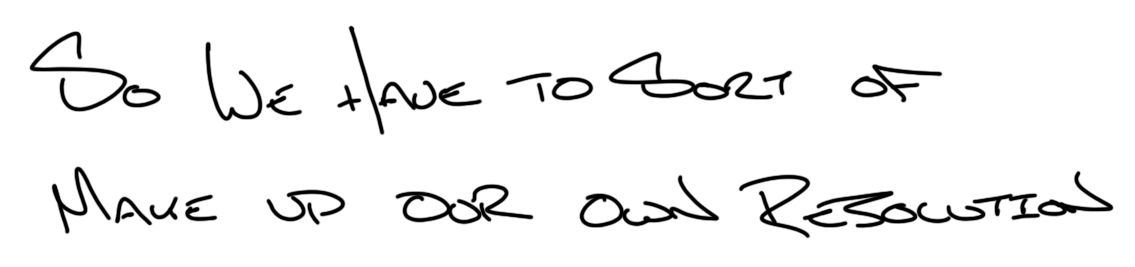 So We Have to Sort of
Make up our own Resolution